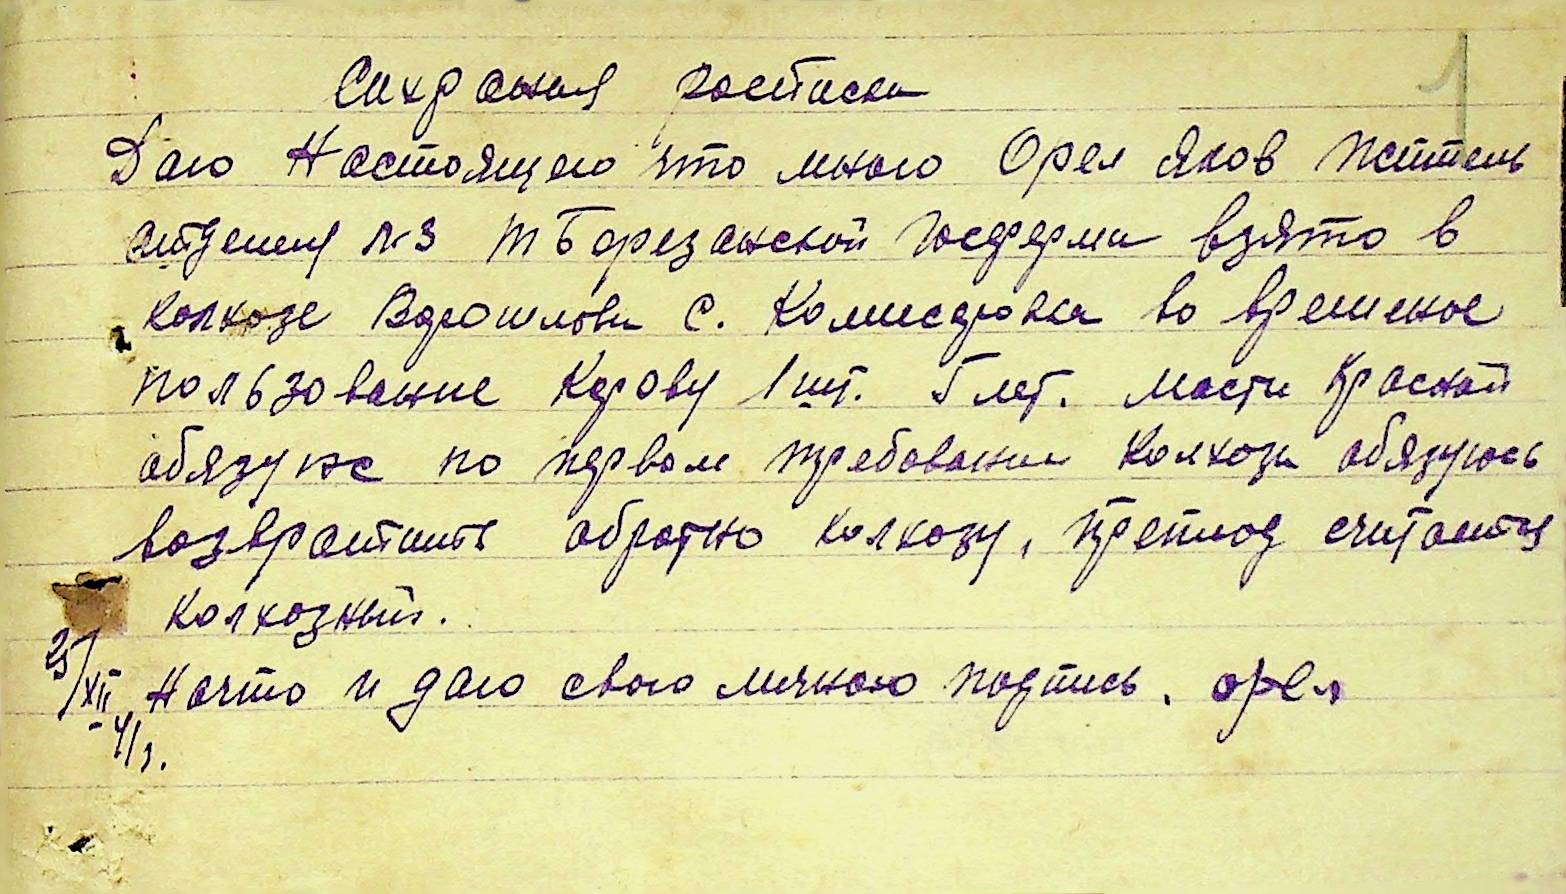 1
Сахраная росписка
Даю Настоящею что мною Орел Яков Житель
отделения №3 Березанской Госферми взято в
колхозе Ворошлова С. Комисаровка во временое
пользование Корову 1 шт. 5 лет. Масти Красной
обязуюс по первом требовании Колхоза обязуюсь
возвратить обратно колхозу, преплод считаится
Колхозный.
Начто и даю свою личную подпись. орел
25/XII